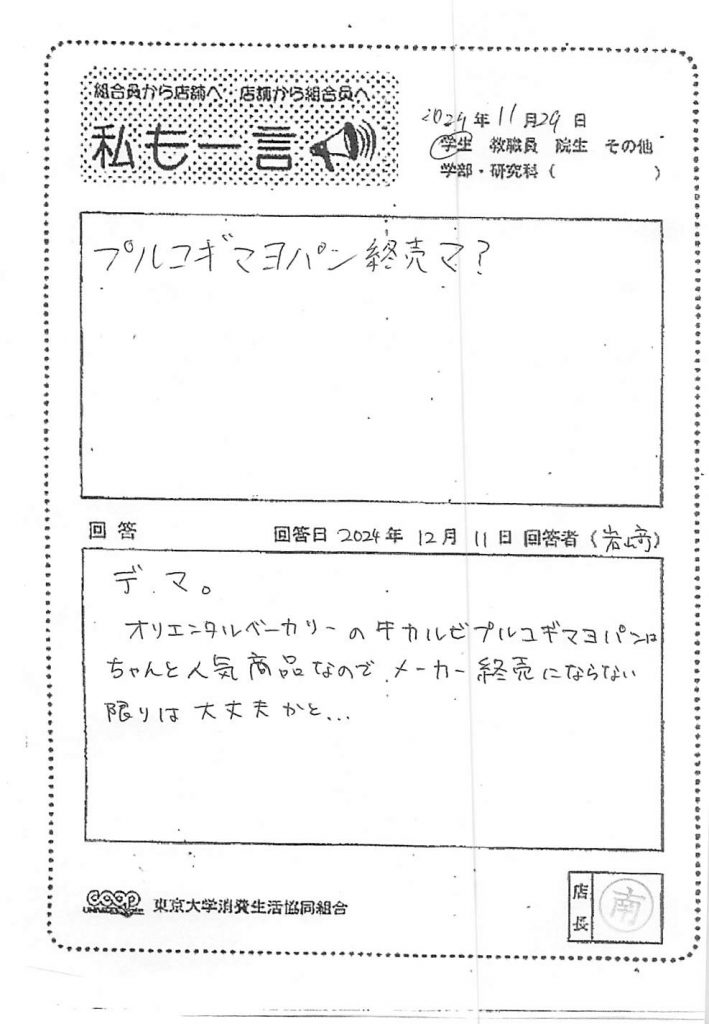 組合員から店舗へ 店舗から組合員へ
私も一言
2024年11月29日
学生 教職員 院生 その他
学部・研究科( )
プルコギマヨパン終売マ?
回答 回答日 2024年 12月 11日 回答者(岩﨑)
デマ。
オリエンタルベーカリーの牛カルビプルコギマヨパンは
ちゃんと人気商品なので、メーカー終売にならない
限りは大丈夫かと...
coop 東京大学消費生活協同組合
店長
南